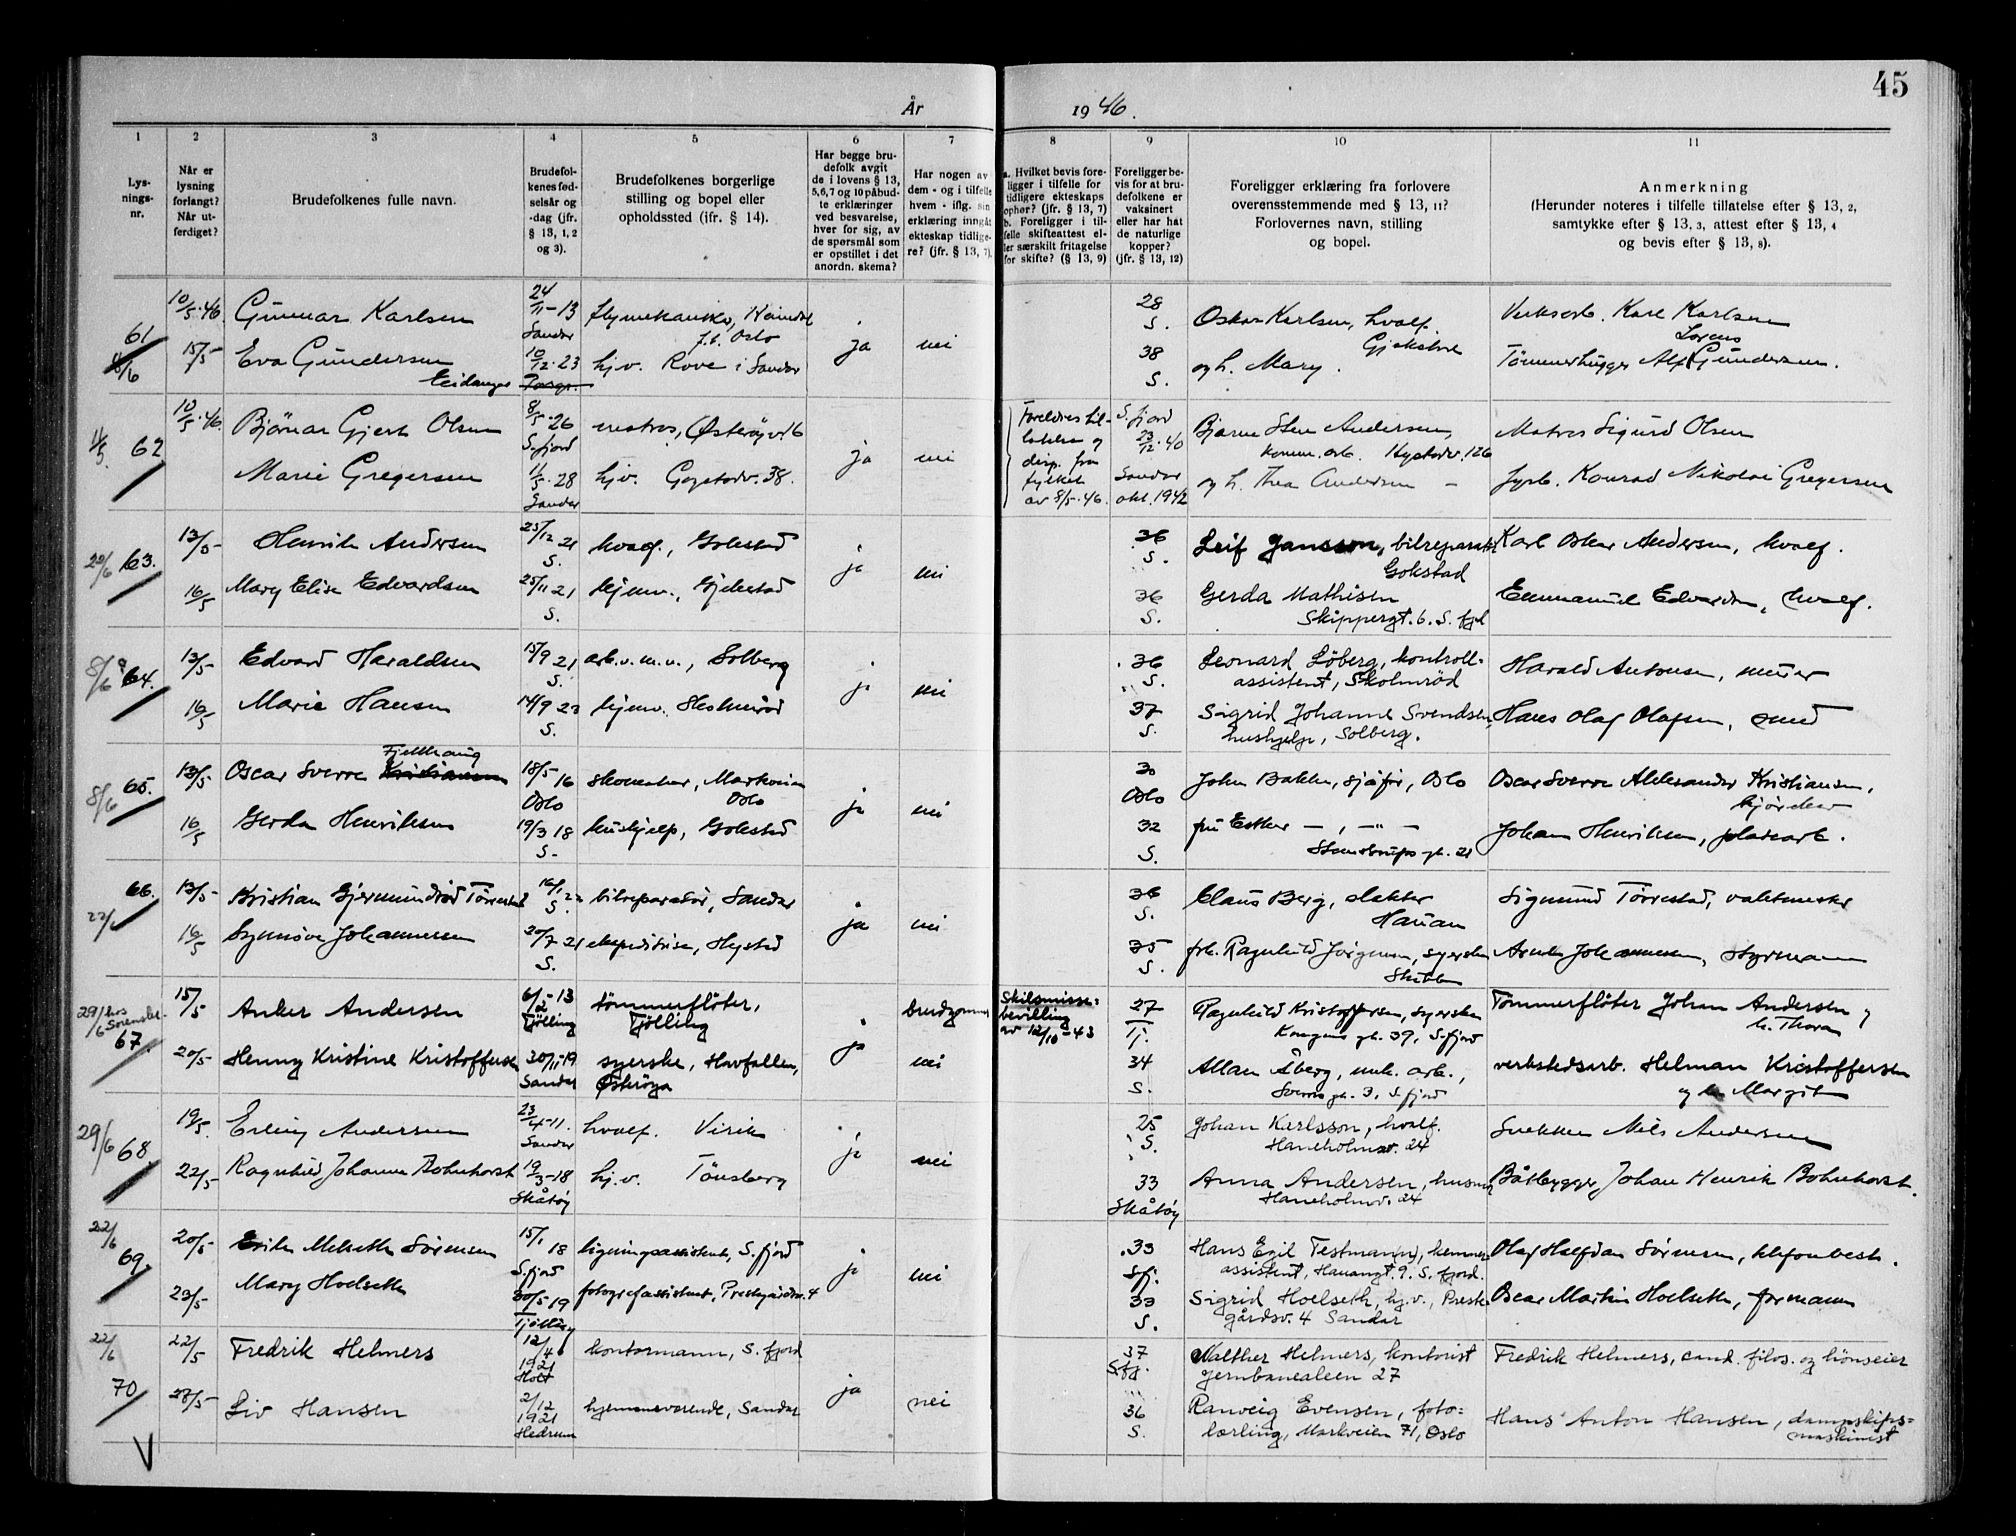 45
År 1946.
1 2 3 4 5 6 7 8 9 10 11
Lys-
nings-
nr.
Når er
lysning
forlangt?
Når ut-
ferdiget?
Brudefolkenes fulle navn.
Brudefol-
kenes fød-
selsår og
-dag (jfr.
§ 13, 1, 2
og 3).
Brudefolkenes borgerlige
stilling og bopel eller
opholdssted (ifr. § 14).
Har begge bru-
defolk avgit
de i lovens § 13,
5,6,7 og 10 påbud-
te erklæringer
ved besvarelse,
hver for sig, av
de spørsmål som
er opstillet i det
anordn. skema?
Har nogen av
dem - og i tilfelle
hvem - iflg. sin
erklæring inngåt
ekteskap tidlige-
re? (jfr. § 13, 7).
a. Hvilket bevis fore-
ligger i tilfelle for
tidligere ekteskaps
ophør? (jfr. § 13, 7)
b. Foreligger i til-
felle skifteattest el-
ler særskilt fritagelse
for skifte? (§ 13, 9)
Foreligger be-
vis for at bru-
defolkene er
vaksinert
eller har hat
de naturlige
kopper?
(jfr. § 13, 12)
Foreligger erklæring fra forlovere
overensstemmende med § 13, 11?
Forlovernes navn, stilling
og bopel.
Anmerkning
(Herunder noteres i tilfelle tillatelse efter § 13, 2,
samtykke efter § 13, 3, attest efter § 13, 4
og bevis efter § 13, 8).
61 10/5-46 Gunnar Karlsen 24/11-13 Sandar flymekaniker, f.t. Oslo ja nei 28 S. Oskar Karlsen, hvalf. Gjekstad Verksarb. Karl Karlsen
15/5 Eva Gundersen Eidanger 10/12-23 hj.v. Rove i Sandar 38 S. og h. Mary. Tømmerhugger Alf Gundersen.
11/5 62 10/5-46 Bjørnar Gjert Olsen 8/5-26 S.fjord matros, Østerøyv. 16 ja nei Foreldres til-
latelse og
disp. fra
fylket
av 8/5-46. S.fjord 23/12-40 Bjarne Sten Andersen, komm. arb. Hystadv. 126 Matros Sigurd Olsen
Marie Gregersen 11/5-28 Sandar hj.v. Gogstadv. 38. Sandar okt. 1942 og h. Thea Andersen - fyrb. Konrad Nikolai Gregersen
20/6 63. 13/5 Henrik Andersen 23/12 21 S. hvalf., Gokstad ja nei 36 S. Leif Jansson, bilreparatør Gokstad Karl Oskar Andersen, hvalf.
16/5 Mary Elise Edvardsen 25/11 21 S. hjemv., Gjekstad 36 S. Gerda Mathisen Skippergt. 6. S. fjd Emmanuel Edvardsen, hvalf.
8/6 64. 13/5 Edvard Haraldsen 15/9 21 S. arb. v. m. v., Solberg ja nei 36 S. Leonard Løberg, kontroll-
assistent, Skolmrød Harald Antonsen, murer
16/5 Marie Hansen 14/9 23 S. hjemv. 37 S. Sigrid Johanne Svendsen, hushjelp, Solberg. Hans Olaf Olafsen, smed
8/6 65. 13/5 Oscar Sverre Kristiansen Fjellhaug 18/5 16 Oslo skomaker, Markveien Oslo ja nei 30 Oslo John Bakken, sjåfør, Oslo Oscar Sverre Aleksander Kristiansen,
16/5 Gerda Henriksen 19/3 18 S. hushjelp, Gokstad 32 S. fru Esther - , - " - Steenstrups gt. 21 Johan Henriksen, platearb.
22/6 66. 13/5 Kristian Gjermundrød Tørrestad 16/1 22 S. bilreparatør, Sandar ja nei 36 S. Claus Berg, slakter Hauan Sigmund Tørrestad, vaktmester
16/5 Synnøve Johannessen 20/7 21 S. ekspeditrise, Hystad 35 S. frk. Ragnhild Jørgensen, syerske Arnt Johannessen, styrmann
29/6 hos Sørensler. 67. 15/5 Anker Andersen 6/2-13 Tjølling tømmerfløter, Tjølling ja brudgommen Skilsmisse-
bevilling
av 12/10-43 27 Tj. Ragnhild Kristoffersen, syerske Kongens gt. 39, S.fjord Tømmerfløter Johan Andersen og h. Thora
20/5 Henny Kristine Kristoffersen 30/11-19 Sandar syerske, Havfallen, Østerøya nei 34 S. Allan Åberg, mek. arb., Sverres gt. 3, S.fjord verkstedsarb. Helman Kristoffersen og h. Margit
29/6 68 19/5. Erling Andersen 23/4-11. Sandar hvalf. Virik ja nei 25 S. Johan Karlsson, hvalf. Haneholmv. 24 Snekker Nils Andersen
22/5 Ragnhild Johanne Bohnhorst 19/3-18 Skåtøy hj.v. Tønsberg 33 Skåtøy Anna Andersen, husmor Haneholmv. 24 Båtbygger Johan Henrik Bohnhorst.
22/6 69. 20/5 Erik Melseth Sørensen 15/1 18 S.fjord ligningsassistent, S.fjord ja nei 33 Sfj. Hans Egil Testmann, kemner-
assistent, Hauangt. 9. S. fjord. Olaf Halfdan Sørensen, telefonbest.
23/5 Mary Hoelseth 30/5 19 Tjølling fotografassistent, Prestegårdsv. 4 33 S. Sigrid Hoelseth, hj.v., Preste-
gårdsv. 4 Sandar Oscar Martin Hoelseth, formann
22/6 70 22/5 Fredrik Helmers 12/4 1921 Holt kontormann, S. fjord ja nei 37 Sfj. Walther Helmers, kontorist
Jernbanealeen 27 Fredrik Helmers, cand. filos. og hönseier
28/5 Liv Hansen 2/12 1921 Hedrum hjemmeværende, Sandar 36 S. Ranveig Evensen, foto-
lærling, Markveien 71, Oslo Hans Anton Hansen, dampskips-
maskinist
V